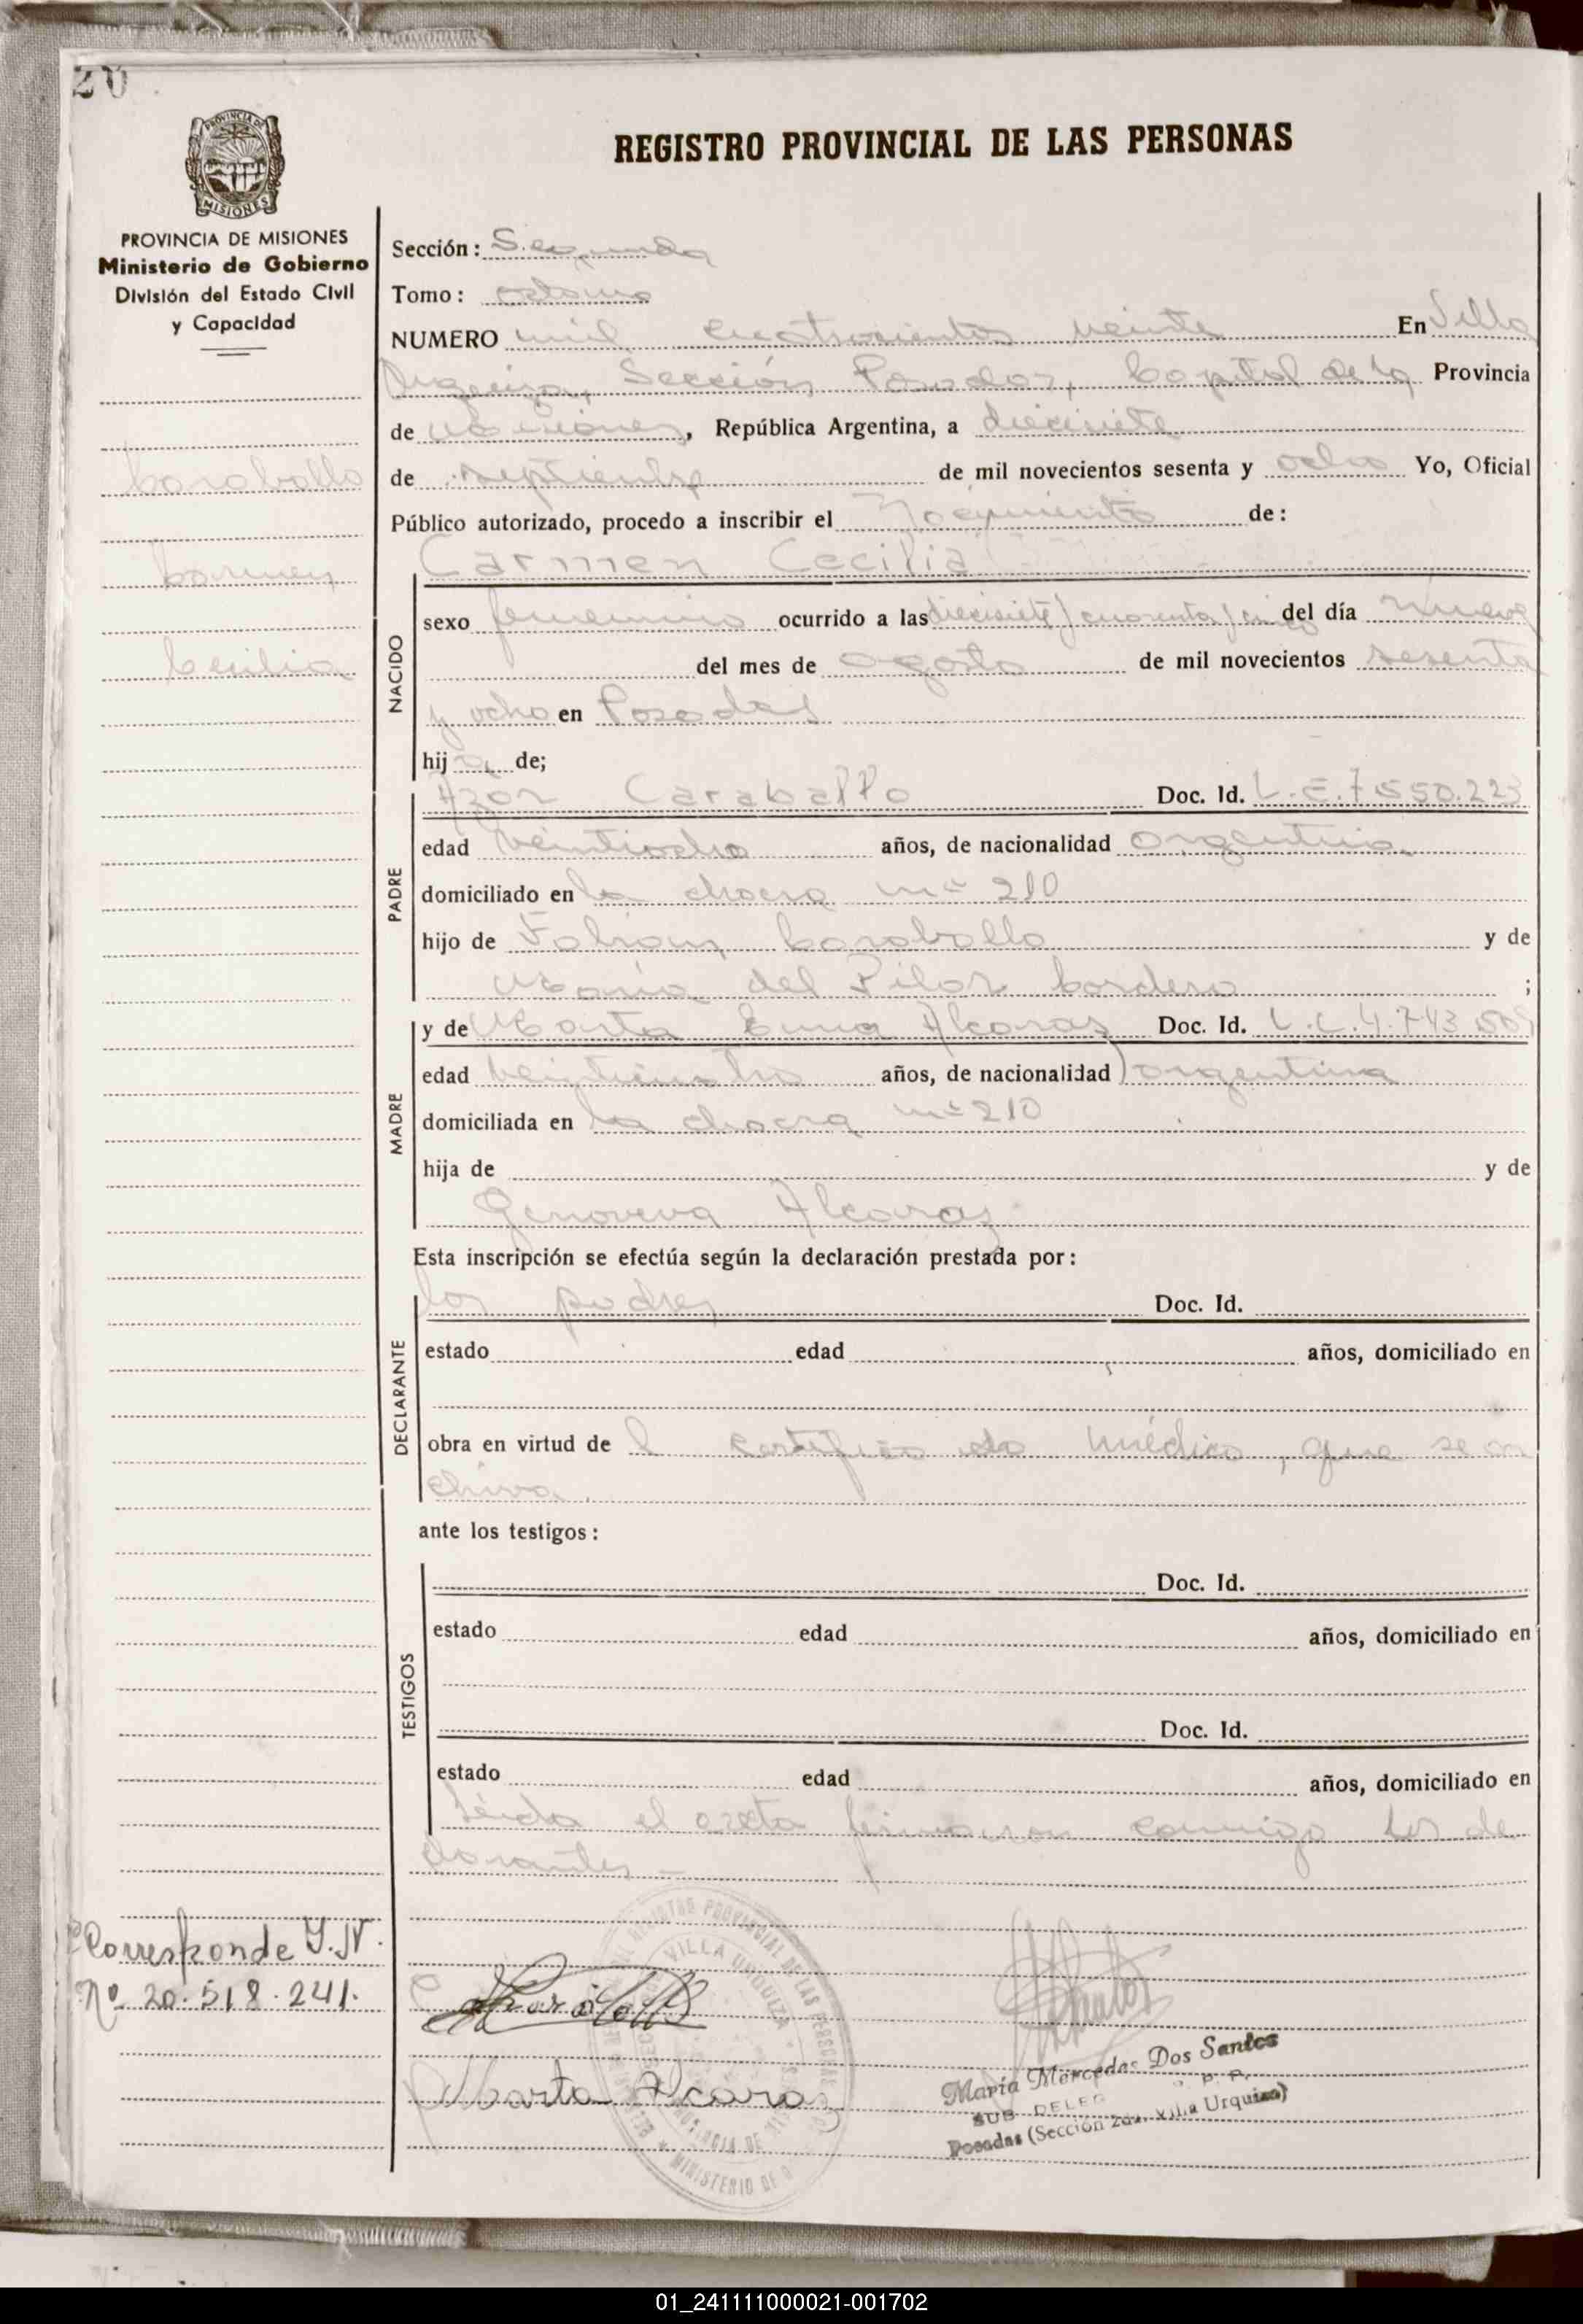 20
REGISTRO PROVINCIAL DE LAS PERSONAS
PROVINCIA DE
MISIONES
PROVINCIA DE MISIONES
Ministerio de Gobierno
División del Estado Civil
y Capacidad
Caraballo
Carmen
Cecilia
Sección: Segunda
Tomo: octavo
NUMERO mil cuatrocientos veinte En Villa
Urquiza, Sección Posadas, Capital de la Provincia
de Misiones, República Argentina, a diecisiete
de septiembre de mil novecientos sesenta y ocho Yo, Oficial
Público autorizado, procedo a inscribir el Nacimiento de:
Carmen Cecilia
NACIDO
sexo femenino ocurrido a las diecisiete y cuarenta y cinco del día nueve
del mes de agosto de mil novecientos sesenta
y ocho en Posadas
hija de;
PADRE
Azor Caraballo Doc. Id. L.E. 7.550.223
edad veintiocho años, de nacionalidad argentina
domiciliado en la chacra nº 210
hijo de Fabian Caraballo y de
María del Pilar Cordero ;
MADRE
y de Marta Alcaraz Doc. Id. L.C. 4.743.
edad veinticuatro años, de nacionalidad argentina
domiciliada en la chacra nº 210
hija de y de
Genoveva Alcaraz
Esta inscripción se efectúa según la declaración prestada por:
DECLARANTE
los padres Doc. Id.
estado edad años, domiciliado en
obra en virtud de l certificado médico, que se ar
chiva.
ante los testigos:
TESTIGOS
Doc. Id.
estado edad años, domiciliado en
Doc. Id.
estado edad años, domiciliado en
Leída el acta firmaron conmigo los de
clarantes –
Corresponde I.N.
Nº 20.518.241.
REGISTRO PROVINCIAL DE LAS PERSONAS
VILLA URQUIZA
MINISTERIO DE
Marta Alcaraz
María Mercedes Dos Santos
SUB DELEG
Posadas (Sección 2da. Villa Urquiza)
01_241111000021-001702